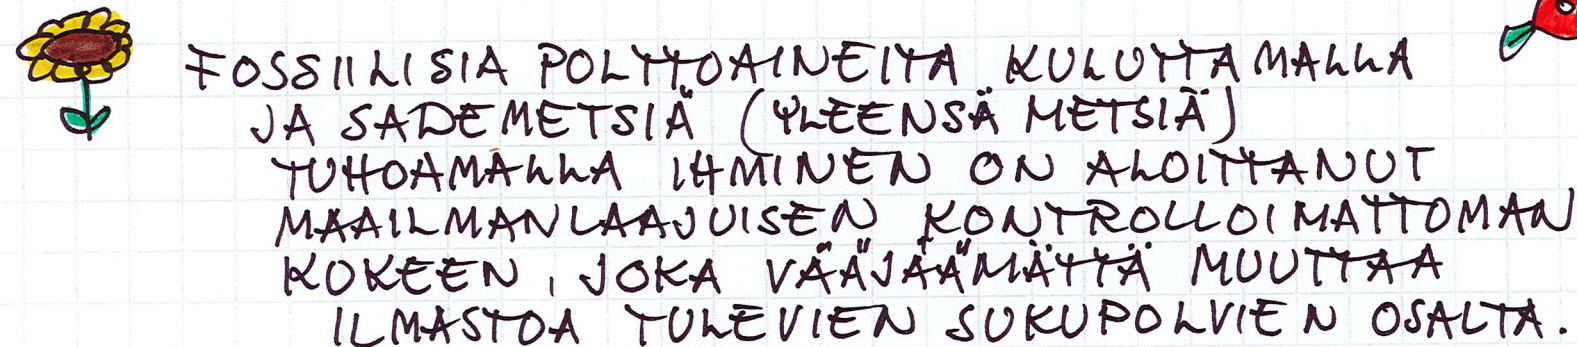 FOSSIILISIA POLTTOAINEITA KULUTTAMALLA
JA SADEMETSIÄ (YLEENSÄ METSIÄ)
TUHOAMALLA IHMINEN ON ALOITTANUT
MAAILMANLAAJUISEN KONTROLLOIMATTOMAN
KOKEEN, JOKA VÄÄJÄÄMÄTTÄ MUUTTAA
ILMASTOA TULEVIEN SUKUPOLVIEN OSALTA.